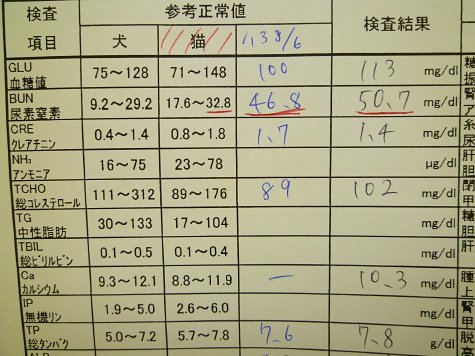 検査 参考正常値 検査結果
項目 犬 猫 8/6
GLU 75～128 71～148 100 113 mg/dl
血糖値
BUN 9.2～29.2 17.6～32.8 46.8 50.7 mg/dl 腎
尿素窒素
CRE 0.4～1.4 0.8～1.8 1.7 1.4 mg/dl
クレアチニン
NH₃ 16～75 23～78 μg/dl 肝
アンモニア 胆
TCHO 111～312 89～176 89 102 mg/dl 閉
総コレステロール 甲
TG 30～133 17～104 mg/dl 糖
中性脂肪 胆
TBIL 0.1～0.5 0.1～0.4 mg/dl 肝
総ビリルビン
Ca 9.3～12.1 8.8～11.9 － 10.3 mg/dl 腫
カルシウム 上
IP 1.9～5.0 2.6～6.0 mg/dl 腎
無機リン 甲
TP 5.0～7.2 5.7～7.8 7.6 7.8 g/dl 脱
総タンパク 高